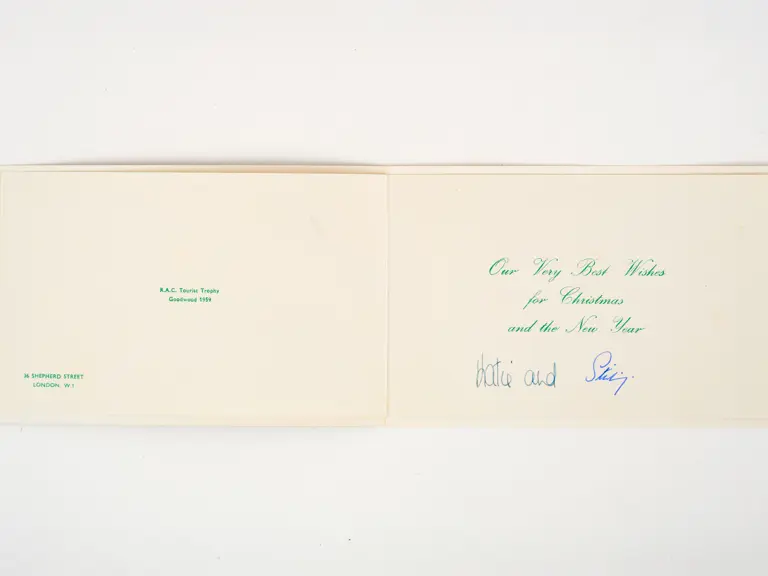 R.A.C. Tourist Trophy
Goodwood 1959
36 SHEPHERD STREET
LONDON W1
Our Very Best Wishes
for Christmas
and the New Year
Katie and